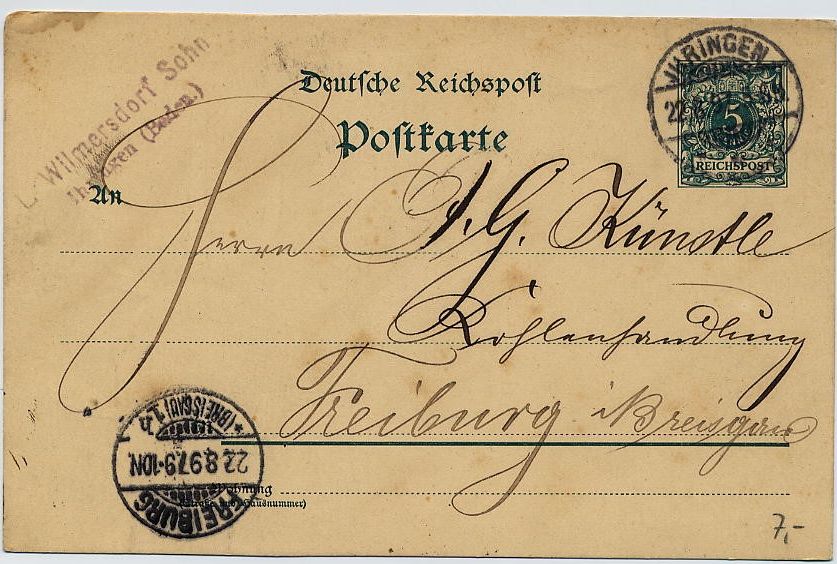 L. Wilmersdorf Sohn
Ihringen (Baden.)
Deutsche Reichspost
Postkarte
IHRINGEN
22
5
REICHSPOST
An
Herrn J. G. Künstle
Kohlenhandlung
Freiburg i Breisgau
FREIBURG
22.8.97.9-10N.
*(BREISGAU)1.*
Wohnung
(Straße und Hausnummer)
7,-